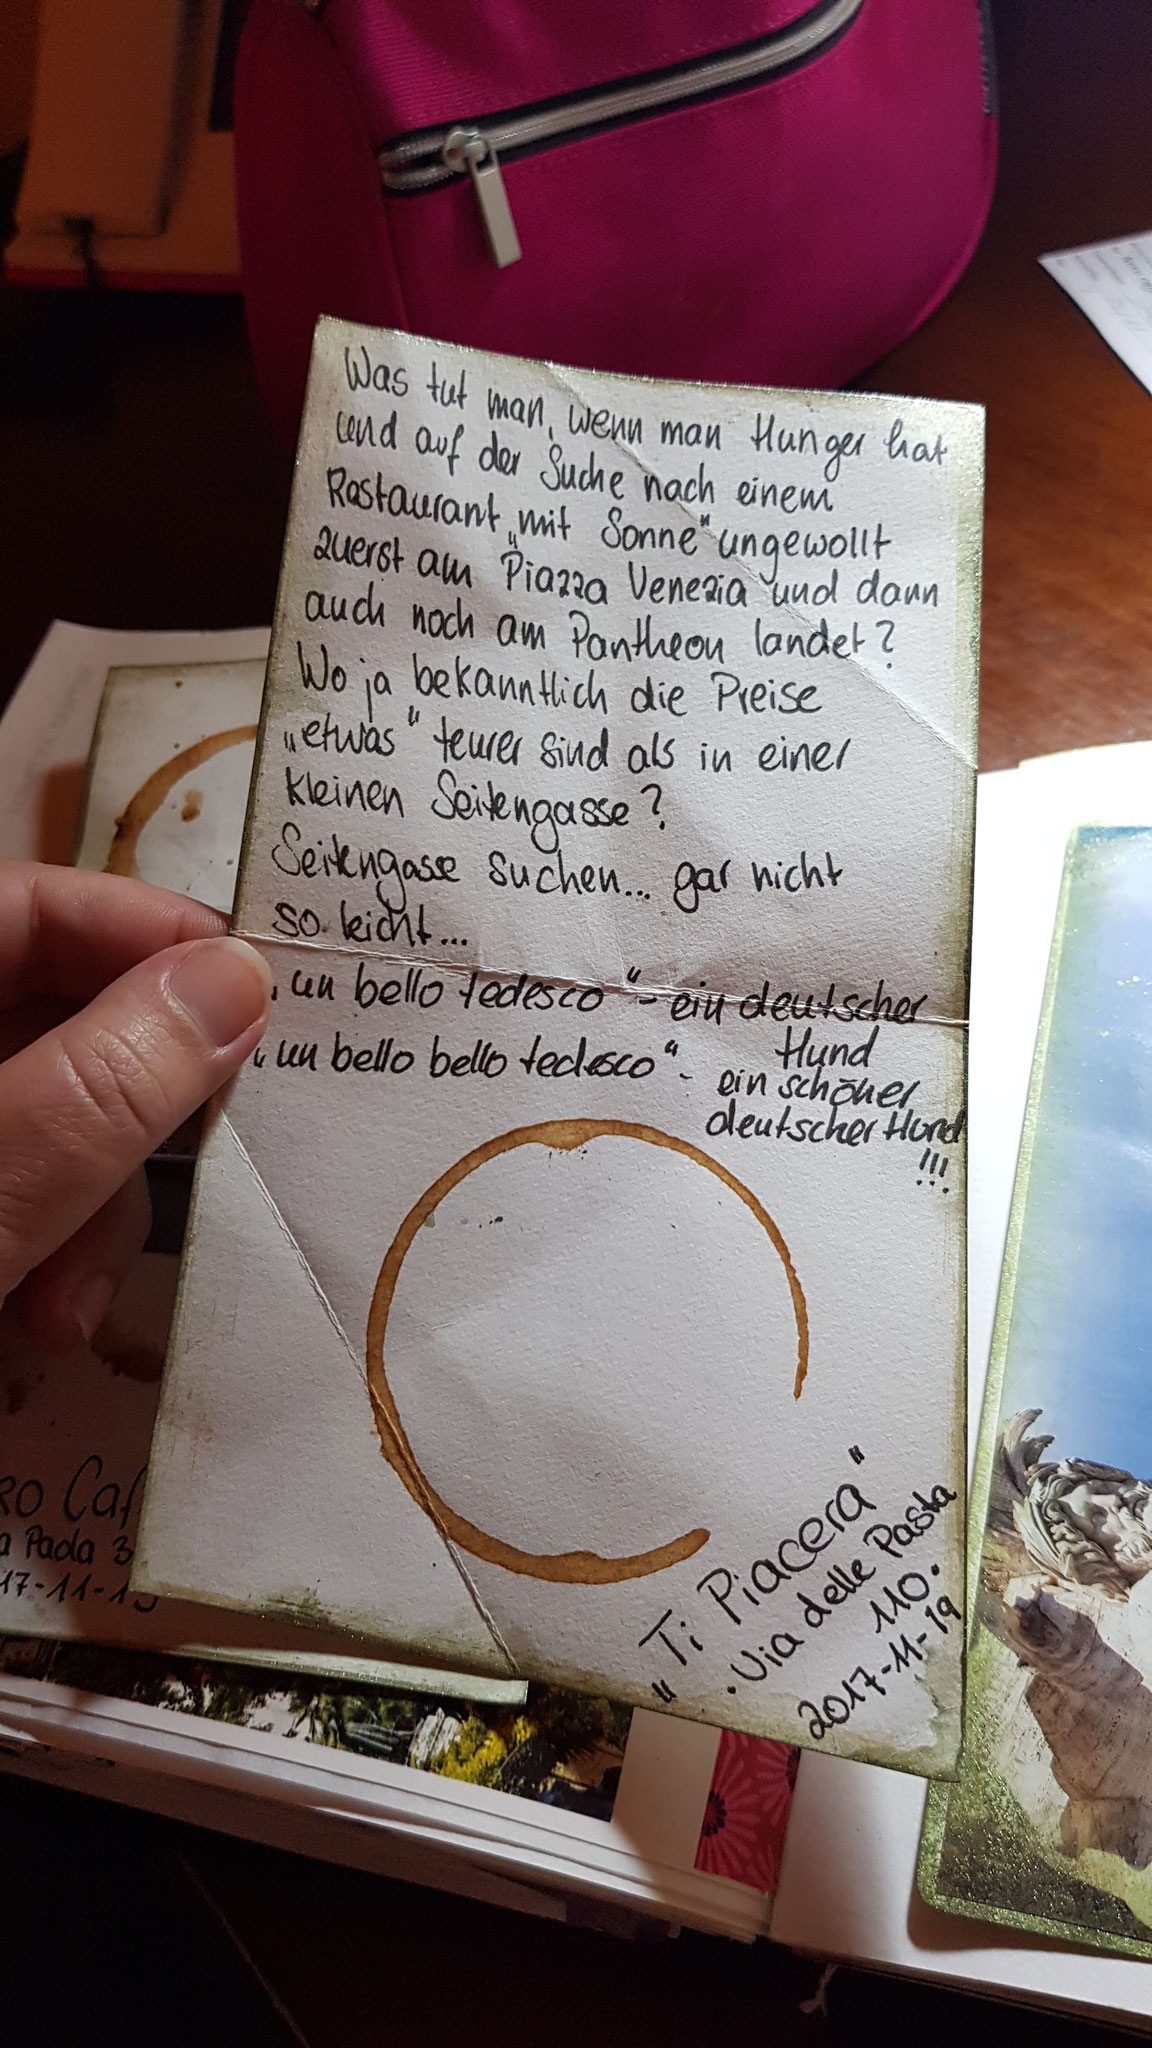 Was tut man, wenn man Hunger hat
und auf der Suche nach einem
Restaurant „mit Sonne“ ungewollt
zuerst am Piazza Venezia und dann
auch noch am Pantheon landet?
Wo ja bekanntlich die Preise
„etwas“ teurer sind als in einer
kleinen Seitengasse?
Seitengasse suchen... gar nicht
so leicht...
„un bello tedesco“ - ein deutscher
Hund
„un bello bello tedesco“ - ein schöner
deutscher Hund
!!!
„Ti Piacera“
Via delle Pasta
110.
2017-11-19
RO Caf
a Paola 3
17-11-19